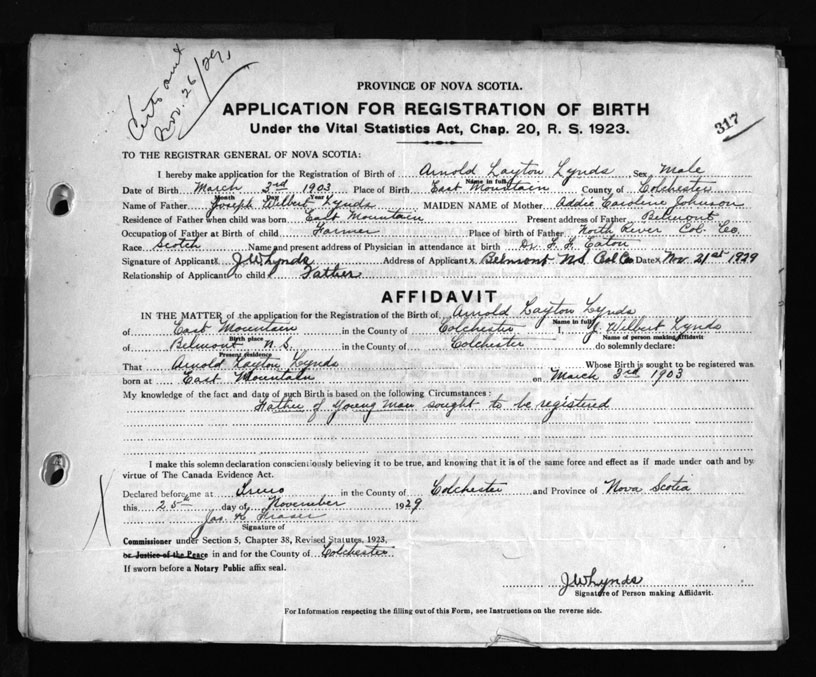 Certs sent
Nov. 26/29,
PROVINCE OF NOVA SCOTIA.
317
APPLICATION FOR REGISTRATION OF BIRTH
Under the Vital Statistics Act, Chap. 20, R. S. 1923.
TO THE REGISTRAR GENERAL OF NOVA SCOTIA:
I hereby make application for the Registration of Birth of Arnold Layton Lynds Sex Male
Name in full
Date of Birth March 3rd 1903 Place of Birth East Mountain County of Colchester
Month Day Year
Name of Father Joseph Wilbert Lynds MAIDEN NAME of Mother Addie Caroline Johnson
Residence of Father when child was born East Mountain Present address of Father Belmont
Occupation of Father at Birth of child Farmer Place of birth of Father North River Col. Co.
Race Scotch Name and present address of Physician in attendance at birth Dr. F. F. Eaton
Signature of Applicant X J W Lynds Address of Applicant X Belmont NS Col Co Date X Nov. 21st 1929
Relationship of Applicant to child Father
AFFIDAVIT
IN THE MATTER of the application for the Registration of the Birth of Arnold Layton Lynds
Name in full
of East Mountain in the County of Colchester I, J. Wilbert Lynds
Birth place Name of person making Affidavit
of Belmont N.S. in the County of Colchester do solemnly declare:
Present residence
That Arnold Layton Lynds Whose Birth is sought to be registered was
born at East Mountain on March 3rd 1903
My knowledge of the fact and date of such Birth is based on the following Circumstances:
Father of young man sought to be registered
I make this solemn declaration conscientiously believing it to be true, and knowing that it is of the same force and effect as if made under oath and by
virtue of The Canada Evidence Act.
Declared before me at Truro in the County of Colchester and Province of Nova Scotia
this 25th day of November 1929
Jas. K. Fraser
Signature of
Commissioner under Section 5, Chapter 38, Revised Statutes, 1923,
or Justice of the Peace in and for the County of Colchester
If sworn before a Notary Public affix seal.
J W Lynds
Signature of Person making Affidavit.
For Information respecting the filling out of this Form, see Instructions on the reverse side.